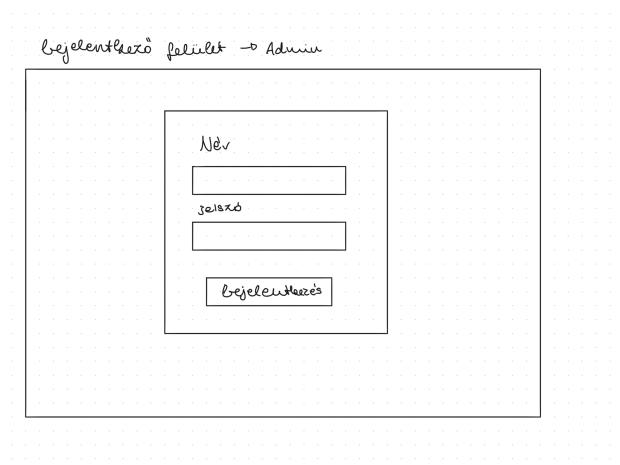 bejelentkező felület → Admin
Név
jelszó
bejelentkezés